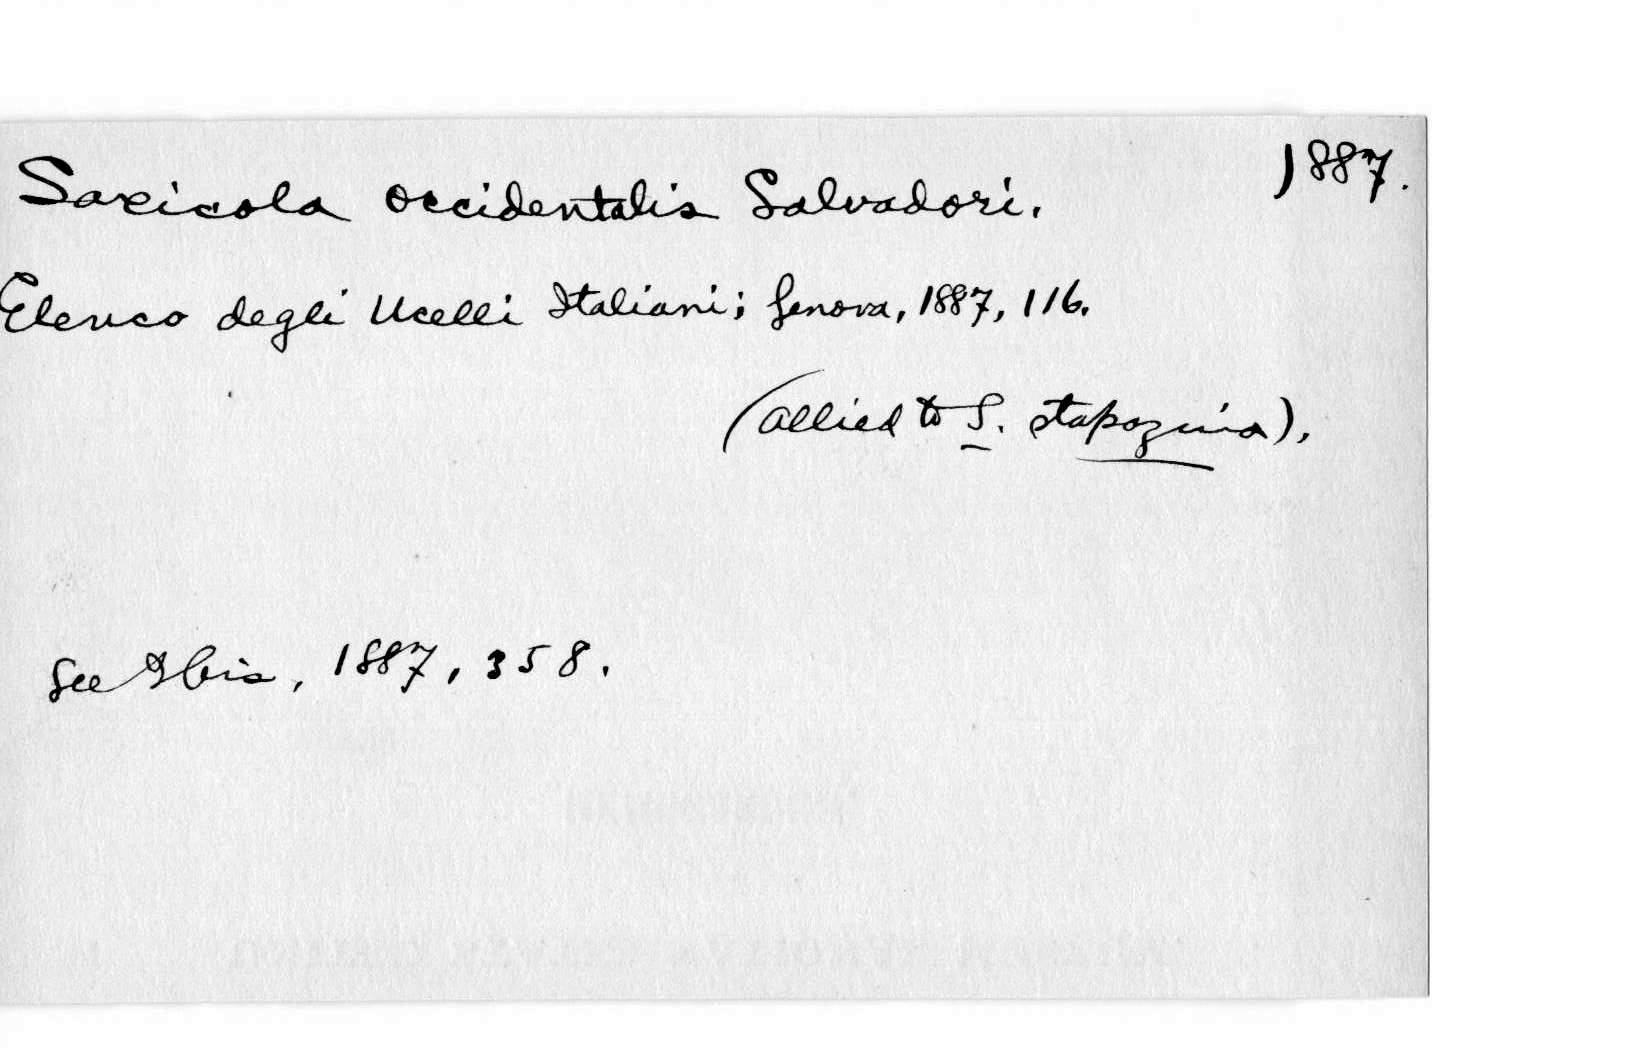 Saxicola occidentalis Salvadori. 1887.
Elenco degli Ucelli Italiani; Genova, 1887, 116.
(allied to S. stapazina).
See Ibis, 1887, 358.